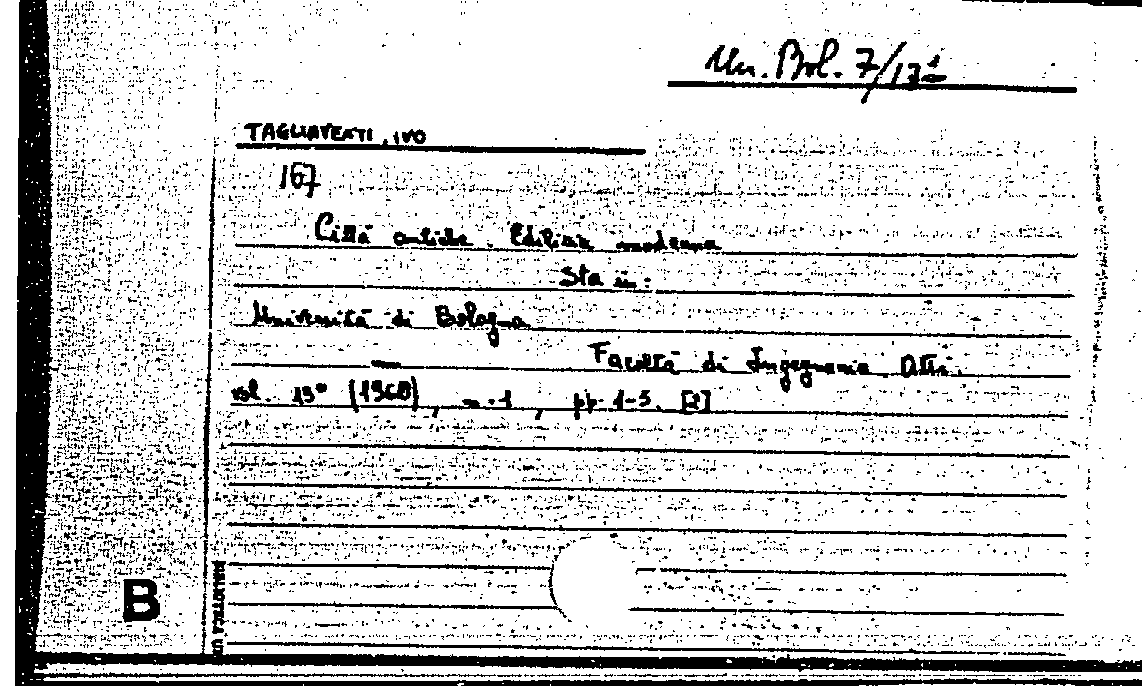 Un. Bol. 7/13¹
TAGLIAVENTI, IVO
167
Città antiche. Edilizia moderna
Sta in:
Università di Bologna
Facoltà di Ingegneria. Atti.
vol. 13° (1960), n. 1, pp. 1-5. [2]
B
BIBLIOTECA